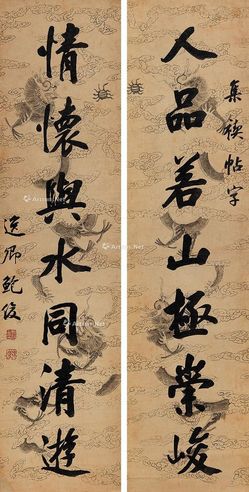 集禊帖字
人品若山極崇峻
情懷與水同清遊
逸卿鮑俊